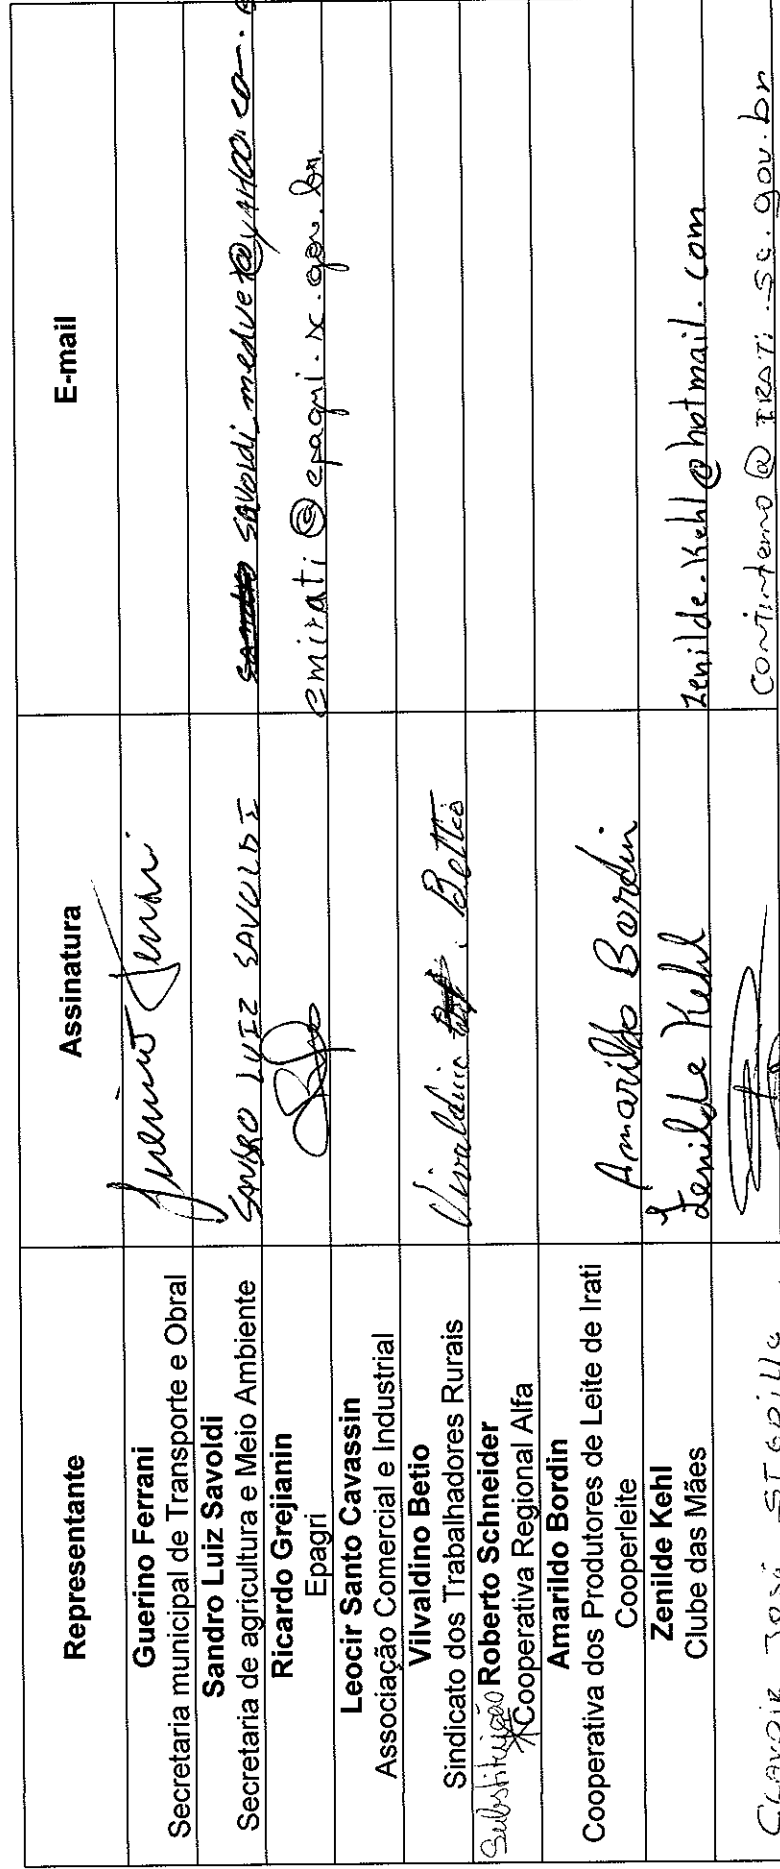 Representante
Assinatura
E-mail
Guerino Ferrani
Secretaria municipal de Transporte e Obral
Sandro Luiz Savoldi
Secretaria de agricultura e Meio Ambiente
SANDRO LUIZ SAVOLDI
savoldi_medvet@yahoo.co
Ricardo Grejianin
Epagri
emirati@epagri.sc.gov.br
Leocir Santo Cavassin
Associação Comercial e Industrial
Vilvaldino Betio
Sindicato dos Trabalhadores Rurais
Bettio
Substituição Roberto Schneider
*Cooperativa Regional Alfa
Amarildo Bordin
Cooperativa dos Produtores de Leite de Irati
Cooperleite
Amarildo Bordin
Zenilde Kehl
Clube das Mães
Zenilde Kehl
zenilde.kehl@hotmail.com
José
continterno@IRATI.sc.gov.br